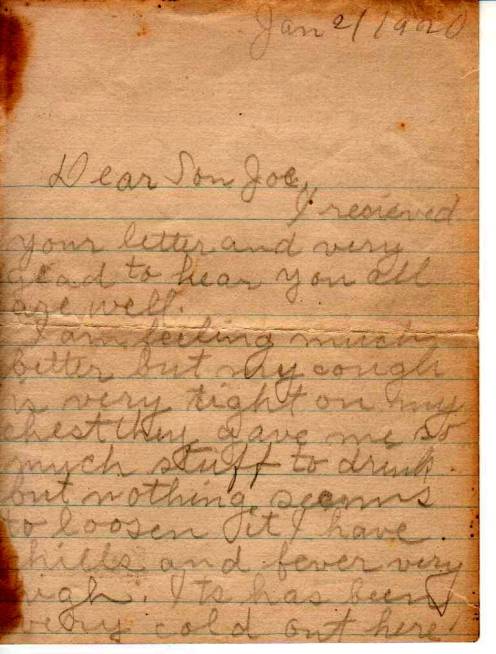 Jan 21 1920
Dear Son Joe,
I recieved
your letter and very
glad to hear you all
are well.
I am feeling much
better but my cough
is very tight on my
chest they gave me so
much stuff to drink.
but nothing seems
to loosen it I have
chills and fever very
high. Its has been
very cold out here